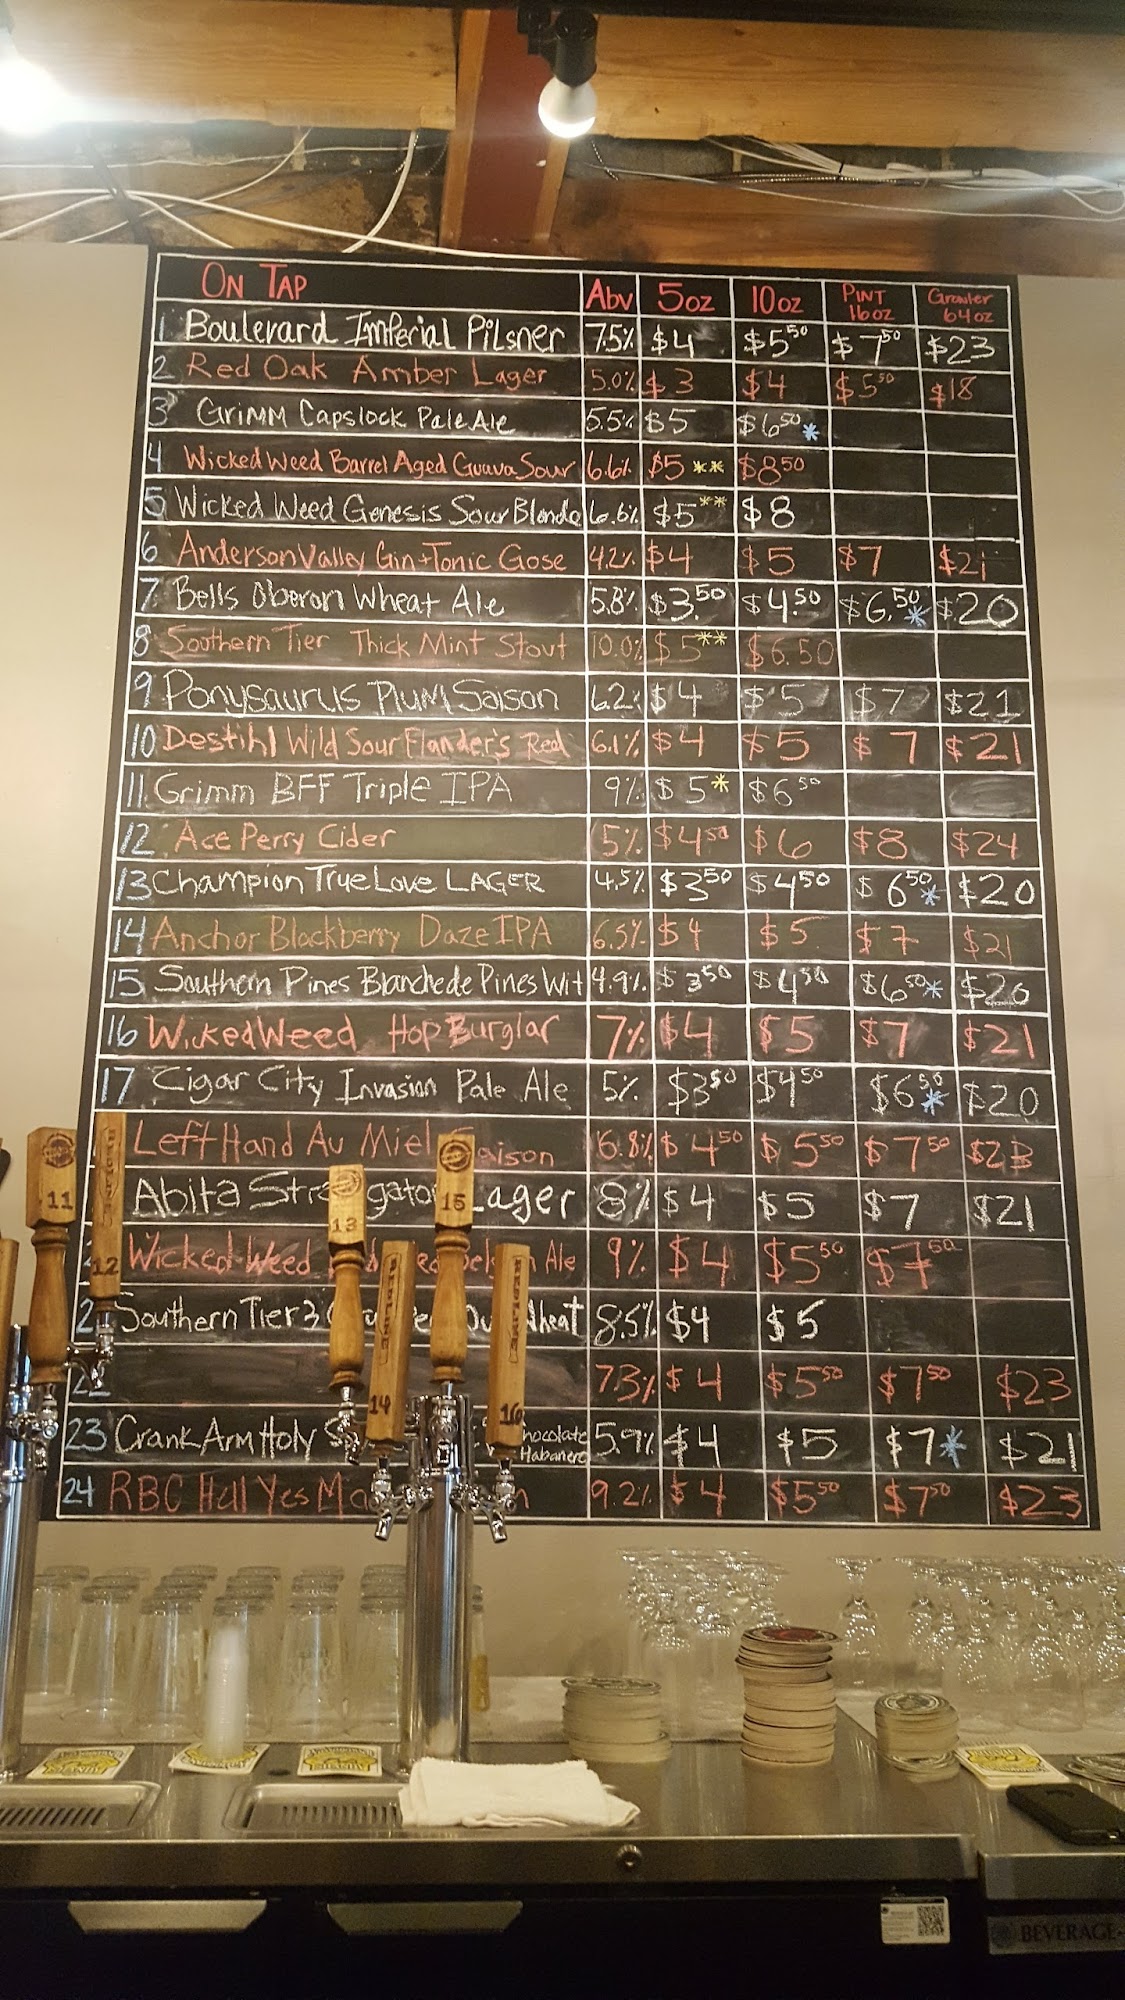 ON TAP Abv 5oz 10oz PINT 16oz Growler 64oz
1 Boulevard Imperial Pilsner 7.5% $4 $5.50 $7.50 $23
2 Red Oak Amber Lager 5.0% $3 $4 $5.50 $18
3 Grimm Capslock Pale Ale 5.5% $5 $6.50 *
4 Wicked Weed Barrel Aged Guava Sour 6.6% $5 ** $8.50
5 Wicked Weed Genesis Sour Blonde 6.6% $5 ** $8
6 Anderson Valley Gin+Tonic Gose 4.2% $4 $5 $7 $21
7 Bells Oberon Wheat Ale 5.8% $3.50 $4.50 $6.50 * $20
8 Southern Tier Thick Mint Stout 10.0% $5 ** $6.50
9 Ponysaurus Plum Saison 6.2% $4 $5 $7 $21
10 Destihl Wild Sour Flander's Red 6.1% $4 $5 $7 $21
11 Grimm BFF Triple IPA 9% $5 * $6.50
12 Ace Perry Cider 5% $4.50 $6 $8 $24
13 Champion True Love LAGER 4.5% $3.50 $4.50 $6.50 * $20
14 Anchor Blackberry Daze IPA 6.5% $4 $5 $7 $21
15 Southern Pines Blanchede Pines Wit 4.9% $3.50 $4.50 $6.50 * $20
16 Wicked Weed Hop Burglar 7% $4 $5 $7 $21
17 Cigar City Invasion Pale Ale 5% $3.50 $4.50 $6.50 * $20
Left Hand Au Miel Saison 6.8% $4.50 $5.50 $7.50 $23
Abita Lager 8% $4 $5 $7 $21
Wicked Weed Ale 9% $4 $5.50 $7.50
Southern Tier 3 8.5% $4 $5
7.3% $4 $5.50 $7.50 $23
23 Crank Arm Holy Chocolate Habanero 5.9% $4 $5 $7 * $21
24 RBC Hell Yes 9.2% $4 $5.50 $7.50 $23
11
12
13
14
15
16
BEVERAGE-